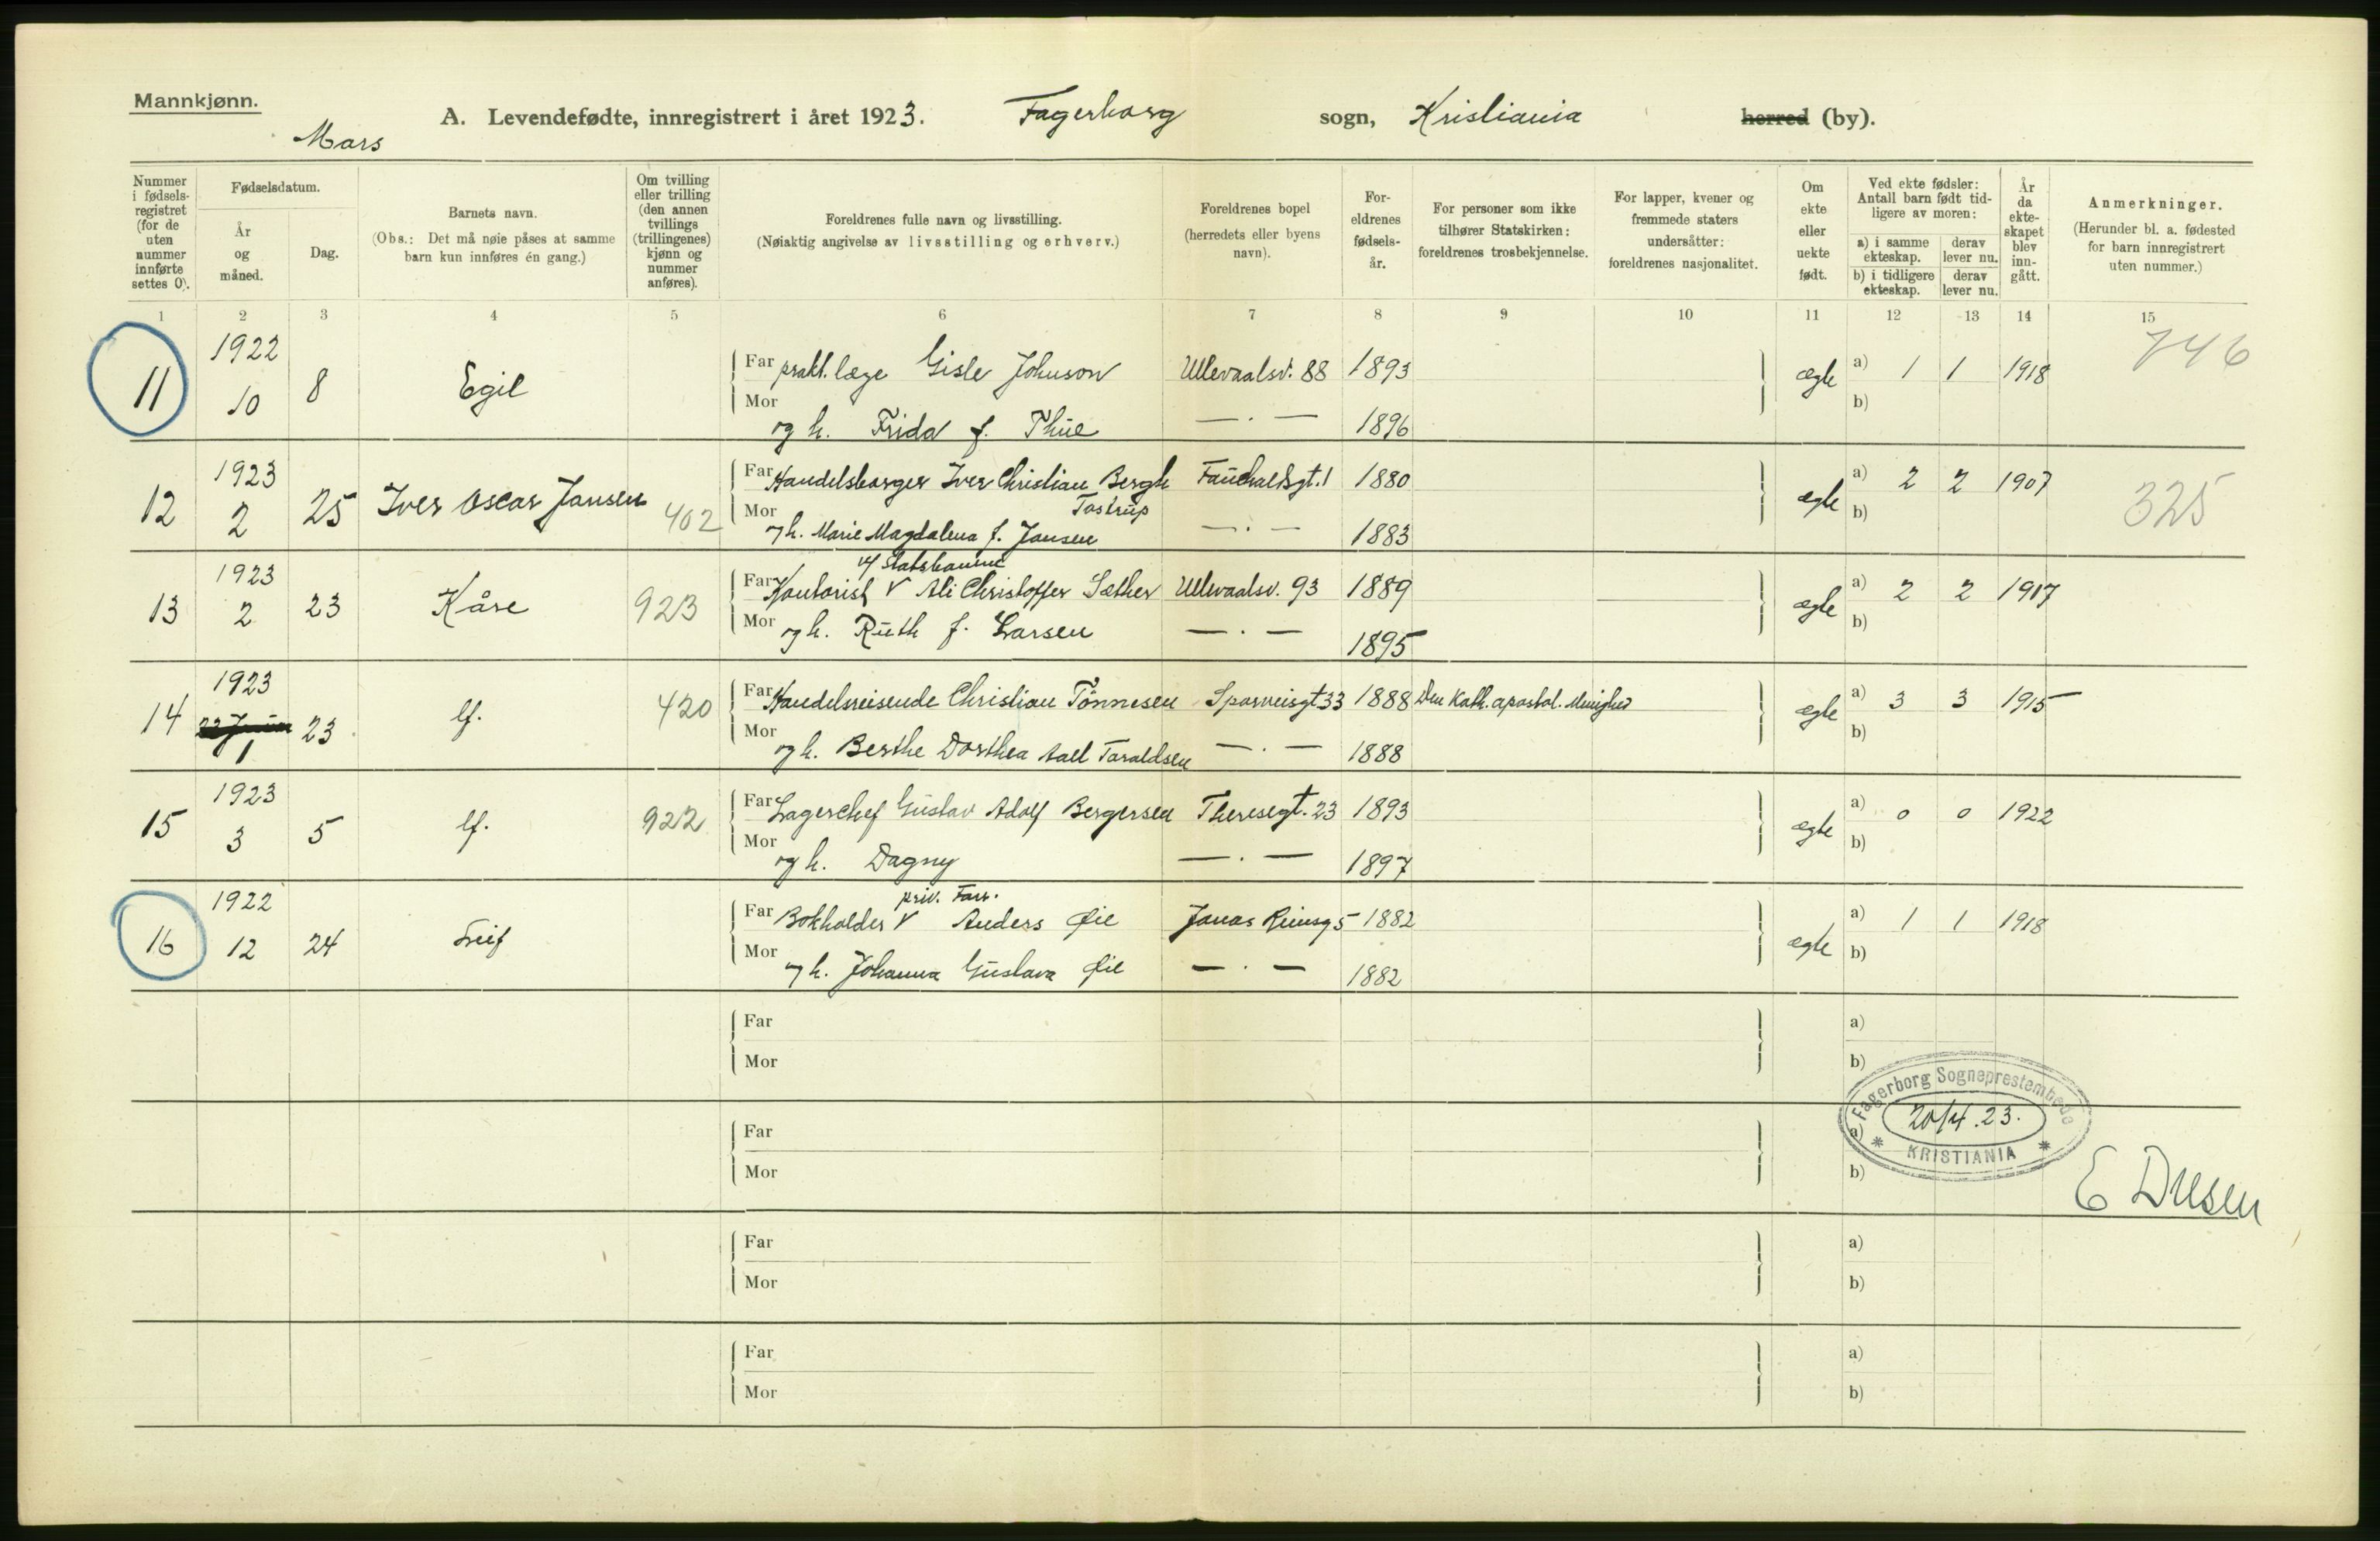 Mannkjønn.
A. Levendefødte, innregistrert i året 1923. Fagerborg sogn, Kristiania herred (by).
Mars
Nummer i fødselsregistret (for de uten nummer innførte settes 0).
Fødselsdatum.
År og måned.
Dag.
Barnets navn.
(Obs.: Det må nøie påses at samme barn kun innføres én gang.)
Om tvilling eller trilling (den annen tvillings (trillingenes) kjønn og nummer anføres).
Foreldrenes fulle navn og livsstilling.
(Nøiaktig angivelse av livsstilling og erhverv.)
Foreldrenes bopel (herredets eller byens navn).
Foreldrenes fødselsår.
For personer som ikke tilhører Statskirken: foreldrenes trosbekjennelse.
For lapper, kvener og fremmede staters undersåtter: foreldrenes nasjonalitet.
Om ekte eller uekte født.
Ved ekte fødsler: Antall barn født tidligere av moren:
a) i samme ekteskap. derav lever nu.
b) i tidligere ekteskap. derav lever nu.
År da ekteskapet blev inngått.
Anmerkninger.
(Herunder bl. a. fødested for barn innregistrert uten nummer.)
1 2 3 4 5 6 7 8 9 10 11 12 13 14 15
11 1922 10 8 Egil Far prakt. læge Gisle Johnson Ullevaalsv. 88 1893 ægte a) 1 1 1918 746
Mor og h. Frida f. Thue — . — 1896 b)
12 1923 2 25 Iver Oscar Jansen 402 Far Handelsborger Iver Christian Bergh Tostrup Fauchaldsgt. 1 1880 ægte a) 2 2 1907 325
Mor og h. Marie Magdalena f. Jansen — . — 1883 b)
13 1923 2 23 Kåre 923 Far Kontorist v/ Statsbanene Ali Christoffer Sæther Ullevaalsv. 93 1889 ægte a) 2 2 1917
Mor og h. Ruth f. Larsen — . — 1895 b)
14 1923 1 23 lf. 420 Far Handelsreisende Christian Tönnesen Sporveisgt 33 1888 Den Kath. apostol. Menighed ægte a) 3 3 1915
Mor og h. Berthe Dorthea Aall Taraldsen — . — 1888 b)
15 1923 3 5 lf. 922 Far Lagerchef Gustav Adolf Bergersen Theresegt. 23 1893 ægte a) 0 0 1922
Mor og h. Dagny — . — 1897 b)
16 1922 12 24 Leif Far Bokholder priv. Forr. Anders Øie Jonas Reinsg 5 1882 ægte a) 1 1 1918
Mor og h. Johanna Gustava Øie — . — 1882 b)
Far a)
Mor b)
Fagerborg Sogneprestembede
20/4.23.
KRISTIANIA
Far a)
Mor b)
Far a)
Mor b)
Far a)
Mor b)